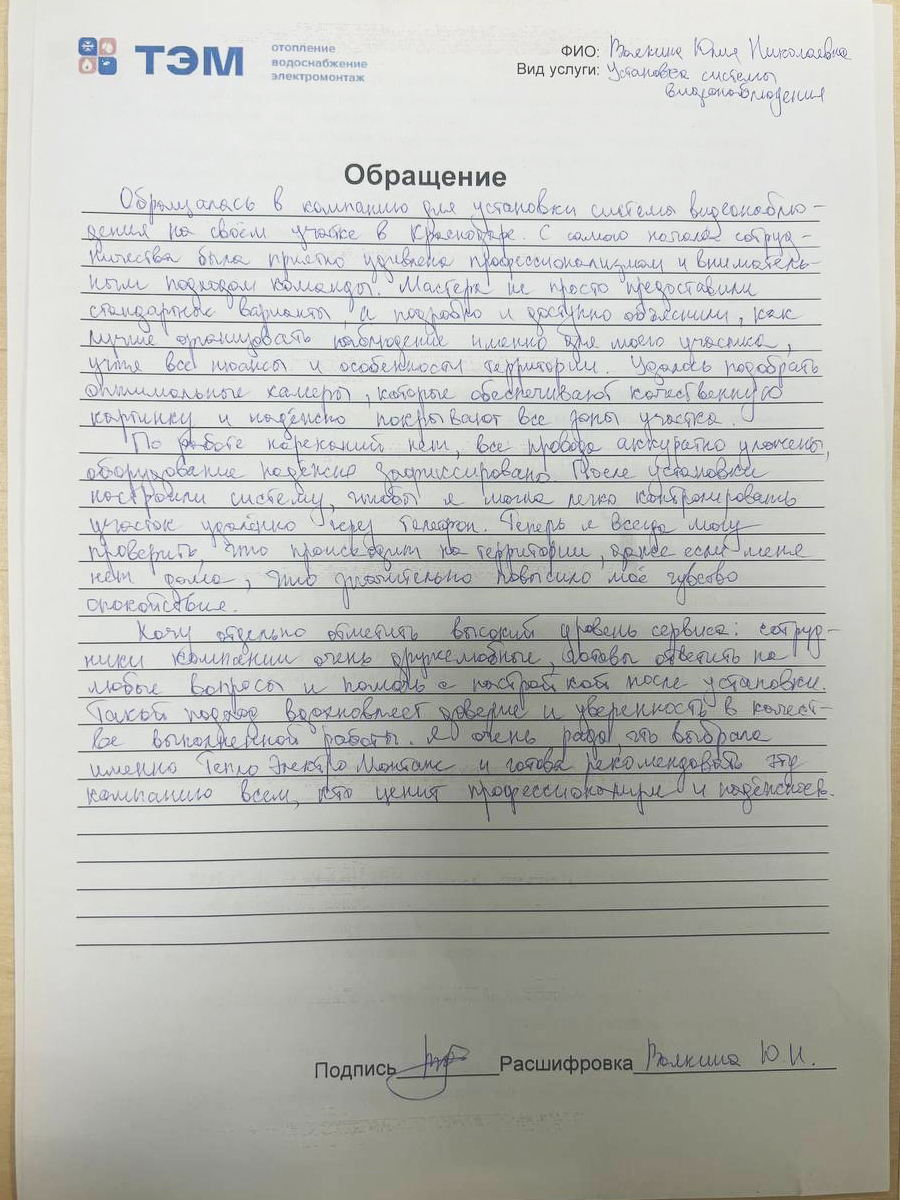 ТЭМ
отопление
водоснабжение
электромонтаж
ФИО: Валкина Юлия Николаевна
Вид услуги: Установка системы
видеонаблюдения
Обращение
Обращалась в компанию для установки системы видеонаблю-
дения на своём участке в Краснодаре. С самого начала сотруд-
ничества была приятно удивлена профессионализмом и вниматель-
ным подходом команды. Мастера не просто предоставили
стандартные варианты, а подробно и доступно объяснили, как
лучше организовать наблюдение именно для моего участка,
учтя все нюансы и особенности территории. Удалось подобрать
оптимальные камеры, которые обеспечивают качественную
картинку и надёжно покрывают все зоны участка.
По работе нареканий нет, все провода аккуратно уложены,
оборудование надёжно зафиксировано. После установки
настроили систему, чтобы я могла легко контролировать
участок удалённо через телефон. Теперь я всегда могу
проверить, что происходит на территории, даже если меня
нет дома, что значительно повысило моё чувство
спокойствия.
Хочу отдельно отметить высокий уровень сервиса: сотруд-
ники компании очень дружелюбные, готовы ответить на
любые вопросы и помочь с настройкой после установки.
Такой подход вдохновляет доверие и уверенность в качест-
ве выполненной работы. Я очень рада, что выбрала
именно ТеплоЭлектроМонтаж и готова рекомендовать эту
компанию всем, кто ценит профессионализм и надёжность.
Подпись Расшифровка Валкина Ю.Н.